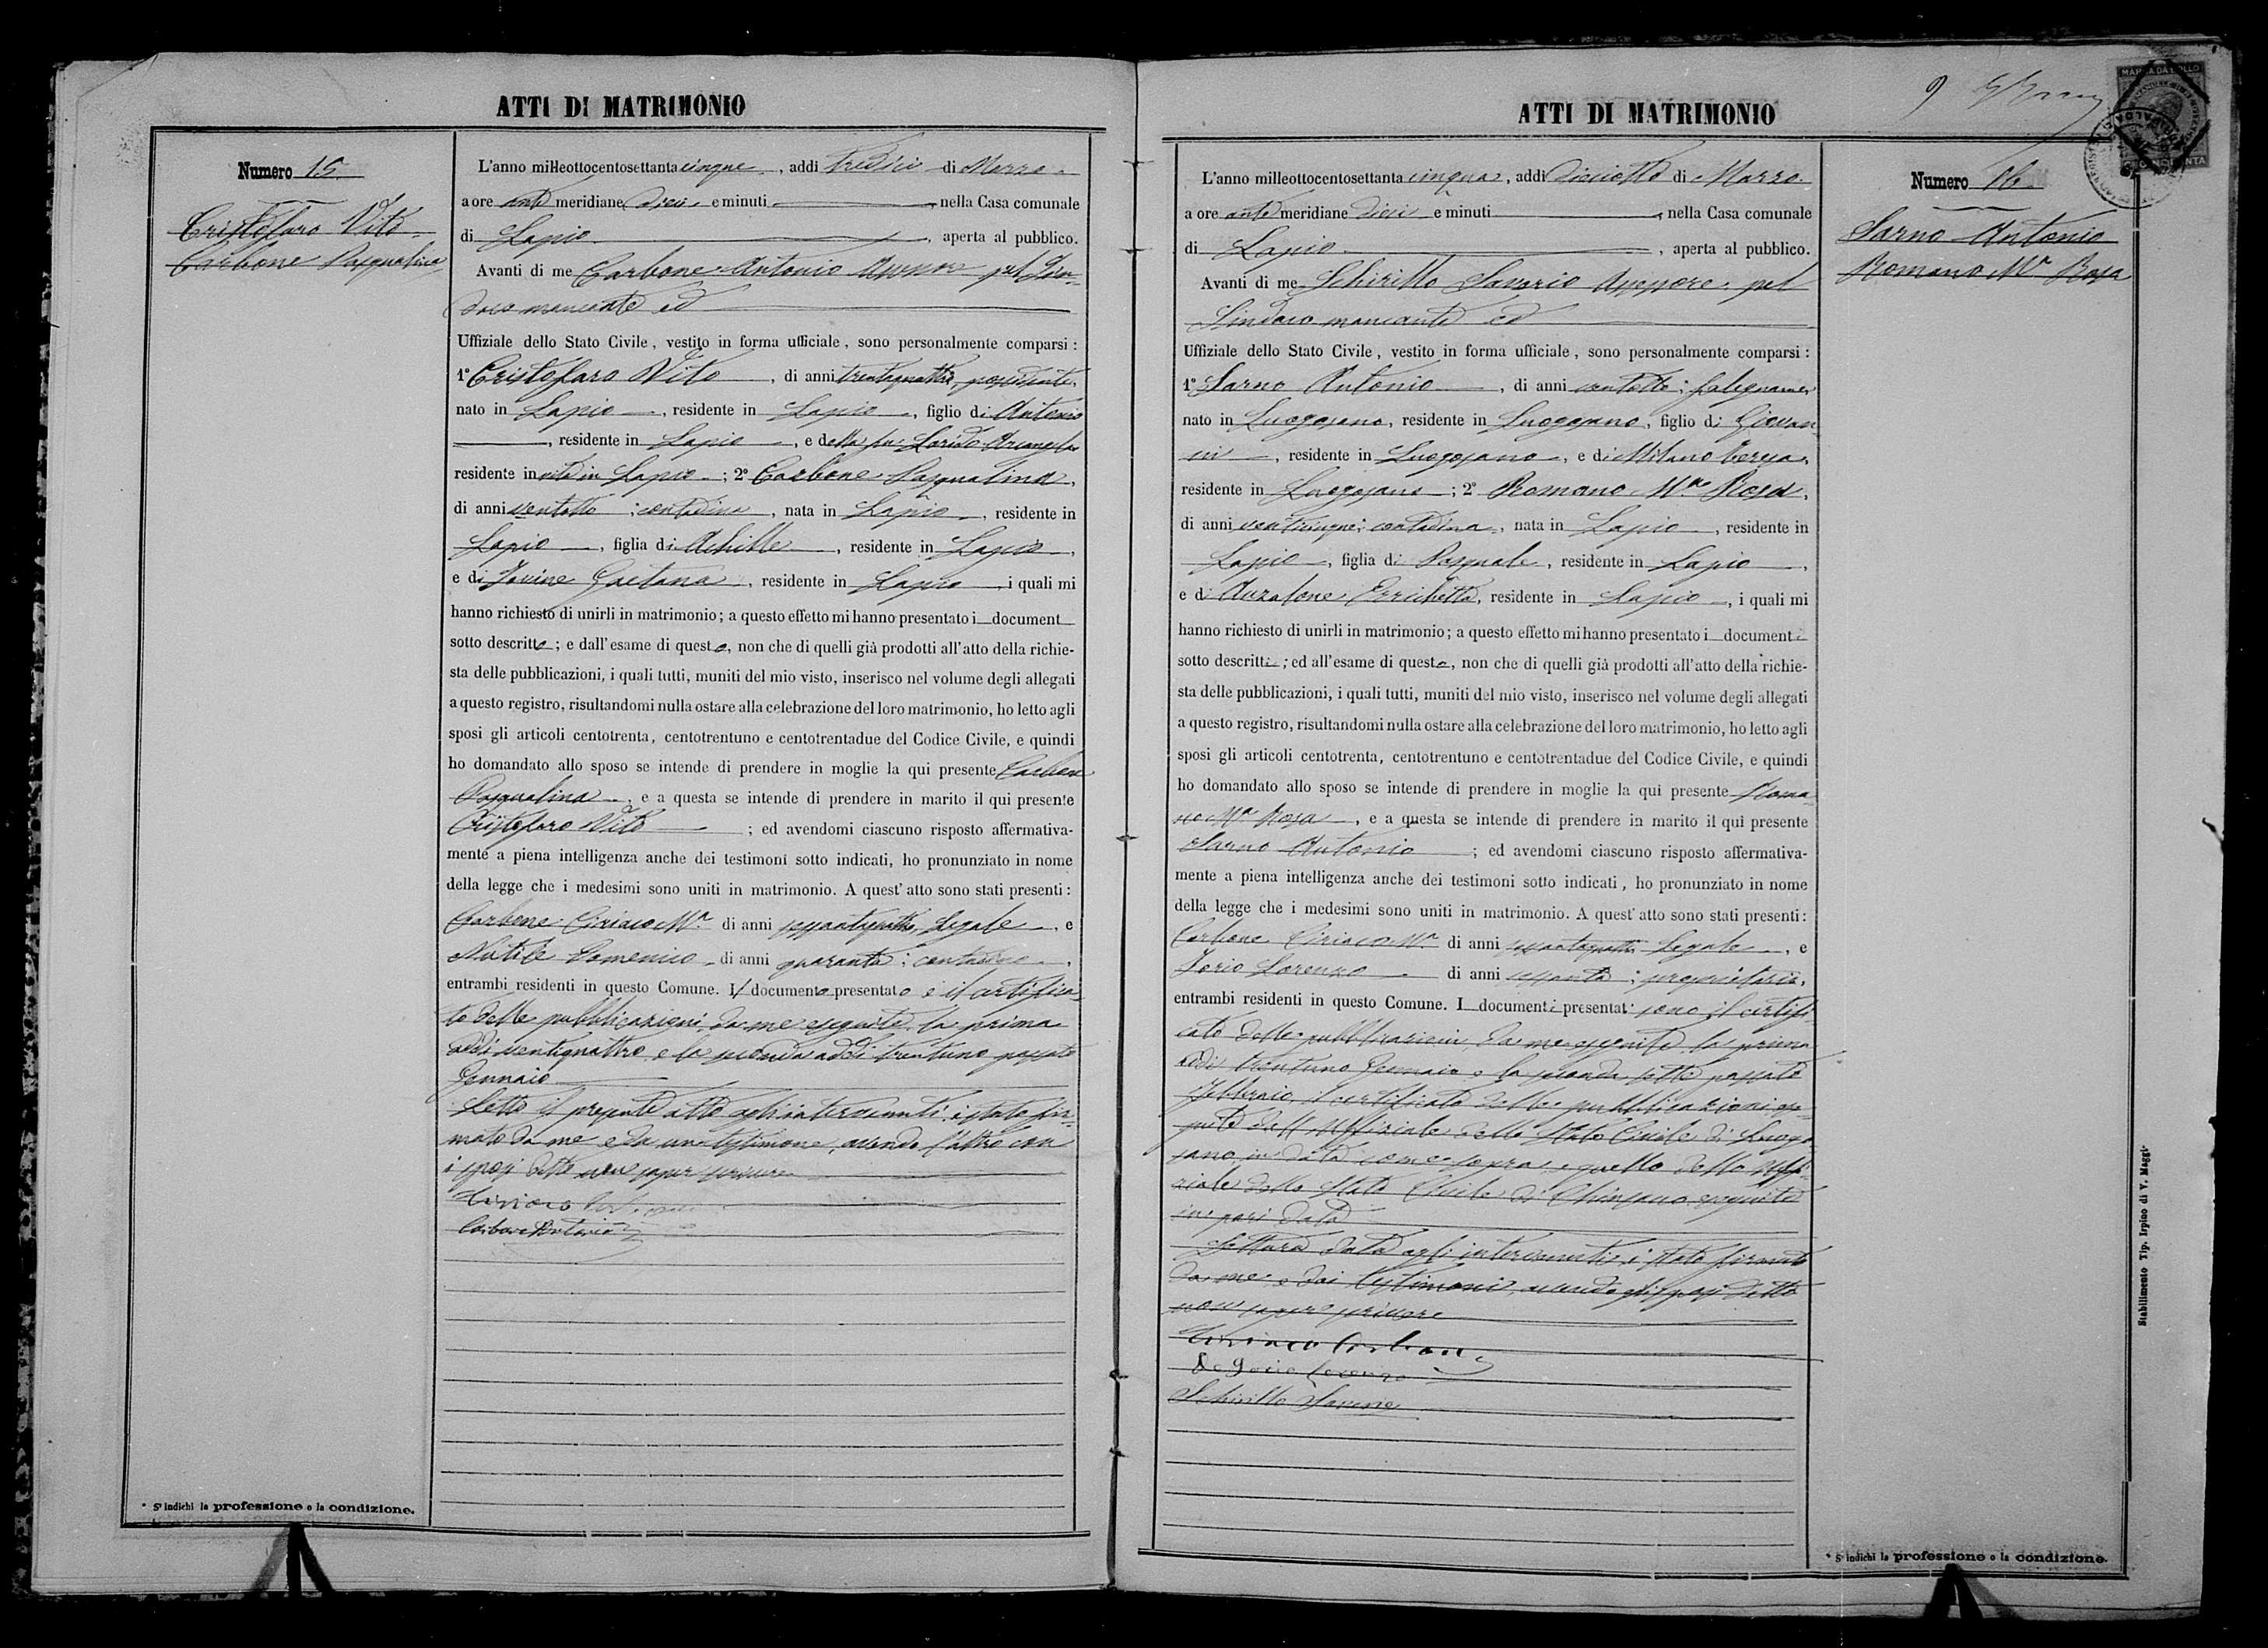 ATTI DI MATRIMONIO
Numero 15
Cristofaro Vito
Carbone Pasqualina
L'anno milleottocentosettanta cinque, addi tredici di Marzo
a ore anti meridiane dieci e minuti, nella Casa comunale
di Lapio, aperta al pubblico.
Avanti di me Carbone Antonio Assessore pel Sin-
daco mancante ed
Uffiziale dello Stato Civile, vestito in forma ufficiale, sono personalmente comparsi:
1º Cristofaro Vito, di anni trentaquattro, possidente,
nato in Lapio, residente in Lapio, figlio di Antonio
, residente in Lapio, e della fu Arcangela
residente in vita in Lapio; 2º Carbone Pasqualina,
di anni ventotto; contadina, nata in Lapio, residente in
Lapio, figlia di Achille, residente in Lapio,
e di Iovine Gaetana, residente in Lapio, i quali mi
hanno richiesto di unirli in matrimonio; a questo effetto mi hanno presentato i document
sotto descritto; e dall'esame di questo, non che di quelli già prodotti all'atto della richie-
sta delle pubblicazioni, i quali tutti, muniti del mio visto, inserisco nel volume degli allegati
a questo registro, risultandomi nulla ostare alla celebrazione del loro matrimonio, ho letto agli
sposi gli articoli centotrenta, centotrentuno e centotrentadue del Codice Civile, e quindi
ho domandato allo sposo se intende di prendere in moglie la qui presente Carbone
Pasqualina, e a questa se intende di prendere in marito il qui presente
Cristofaro Vito; ed avendomi ciascuno risposto affermativa-
mente a piena intelligenza anche dei testimoni sotto indicati, ho pronunziato in nome
della legge che i medesimi sono uniti in matrimonio. A quest'atto sono stati presenti:
Carbone Ciriaco Mª di anni sessantaquattro, legale, e
Domenico di anni quaranta; contadino,
entrambi residenti in questo Comune. Il documento presentato è il certifica-
to delle pubblicazioni da me eseguite la prima
addi ventiquattro e la seconda addi trentuno passato
Gennaio
Letto il presente atto agl'intervenuti è stato fir-
mato da me e da un testimone, avendo l'altro con
i sposi detto non saper scrivere
Ciriaco
Carbone Antonio
* S'indichi la professione o la condizione.
ATTI DI MATRIMONIO
9
MARCA DA BOLLO
Numero 16
Sarno Antonio
Romano Mª Rosa
L'anno milleottocentosettanta cinque, addi diciotto di Marzo
a ore anti meridiane dieci e minuti, nella Casa comunale
di Lapio, aperta al pubblico.
Avanti di me Schirillo Saverio Assessore pel
Sindaco mancante ed
Uffiziale dello Stato Civile, vestito in forma ufficiale, sono personalmente comparsi:
1º Sarno Antonio, di anni ventotto; falegname,
nato in Luogosano, residente in Luogosano, figlio di Giovan-
ni, residente in Luogosano, e di Milano Teresa,
residente in Luogosano; 2º Romano Mª Rosa,
di anni venticinque; contadina, nata in Lapio, residente in
Lapio, figlia di Pasquale, residente in Lapio,
e di Anzalone Errichetta, residente in Lapio, i quali mi
hanno richiesto di unirli in matrimonio; a questo effetto mi hanno presentato i documenti
sotto descritti; ed all'esame di queste, non che di quelli già prodotti all'atto della richie-
sta delle pubblicazioni, i quali tutti, muniti del mio visto, inserisco nel volume degli allegati
a questo registro, risultandomi nulla ostare alla celebrazione del loro matrimonio, ho letto agli
sposi gli articoli centotrenta, centotrentuno e centotrentadue del Codice Civile, e quindi
ho domandato allo sposo se intende di prendere in moglie la qui presente Roma-
no Mª Rosa, e a questa se intende di prendere in marito il qui presente
Sarno Antonio; ed avendomi ciascuno risposto affermativa-
mente a piena intelligenza anche dei testimoni sotto indicati, ho pronunziato in nome
della legge che i medesimi sono uniti in matrimonio. A quest'atto sono stati presenti:
Carbone Ciriaco Mª di anni sessantaquattro legale, e
Iorio Lorenzo di anni sessanta; proprietario,
entrambi residenti in questo Comune. I documenti presentati sono il certifi-
cato delle pubblicazioni da me eseguite la prima
addi trentuno Gennaio e la seconda sette passato
Febbraio, il certificato delle pubblicazioni ese-
guite dall'Uffiziale dello Stato Civile di Luogo-
sano in data come sopra e quello dello Uffi-
ziale dello Stato Civile di Chiusano eseguite
in pari data
Lettura data agli intervenuti, è stato firmato
da me e dai testimoni, avendo gli sposi detto
non sapere scrivere
Ciriaco Carbone
Lorenzo
Schirillo Saverio
* S'indichi la professione o la condizione.
Stabilimento Tip. Irpino di V. Maggi